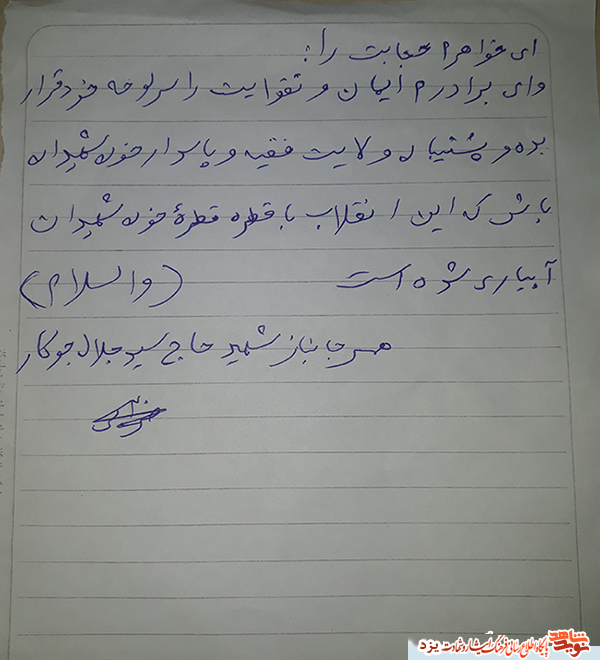 ای خواهرم حجابت را:
وای برادرم ایمان و تقوایت را سرلوحه خود قرار
بده و پشتیبان ولایت فقیه و پاسدار خون شهیدان
باش که این انقلاب با قطره قطرهٔ خون شهیدان
آبیاری شده است (والسلام)
همسر جانباز شهید حاج سید جلال جوکار
نوید شاهد پایگاه اطلاع رسانی فرهنگ ایثار و شهادت یزد